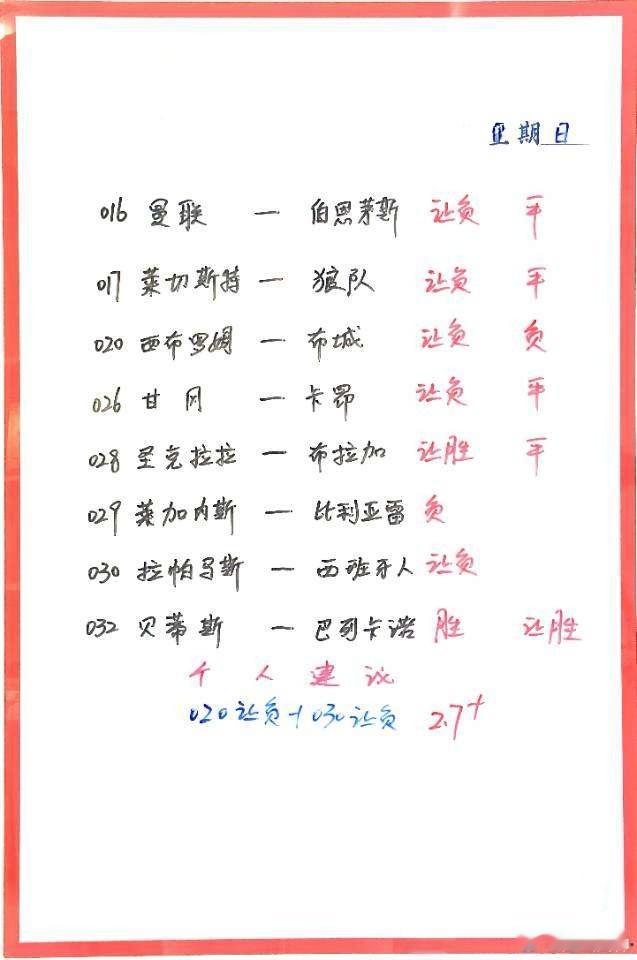 星期日
016 曼联 — 伯恩茅斯 让负 平
017 莱切斯特 — 狼队 让负 平
020 西布罗姆 — 布城 让负 负
026 甘冈 — 卡昂 让负 平
028 圣克拉拉 — 布拉加 让胜 平
029 莱加内斯 — 比利亚雷 负
030 拉帕马斯 — 西班牙人 让负
032 贝蒂斯 — 巴列卡诺 胜 让胜
个人建议
020让负+030让负 2.7+